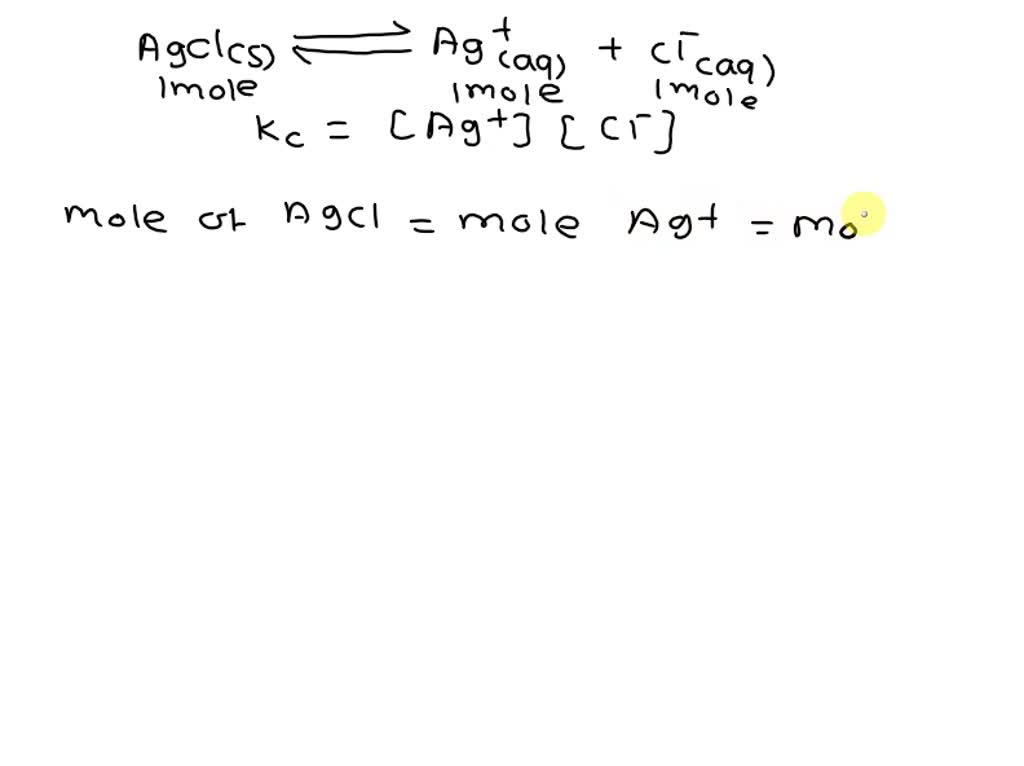 AgCl(s) ⇌ Ag⁺(aq) + Cl⁻(aq)
1mole 1mole 1mole
Kc = [Ag⁺] [Cl⁻]
mole of AgCl = mole Ag+ = mo